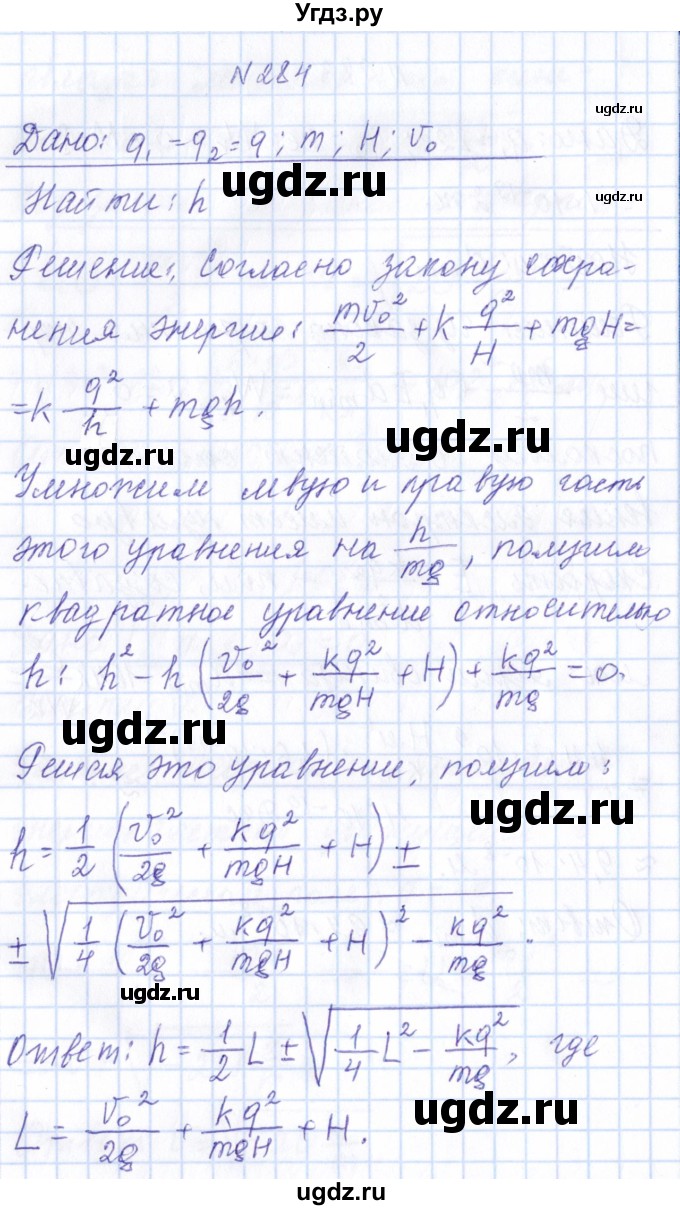 Угдз.ру
N 284
Дано: q₁ = q₂ = q; m; H; v₀
ugdz.ru
ugdz.ru
ugdz.ru
Найти: h
Решение: Согласно закону сохра-
нения энергии: mv₀²/2 + k q²/H + mgH =
= k q²/h + mgh.
ugdz.ru
ugdz.ru
Умножим левую и правую часть
этого уравнения на h/mg, получим
квадратное уравнение относительно
h: h² - h (v₀²/2g + kq²/mgH + H) + kq²/mg = 0.
ugdz.ru
Решая это уравнение, получим:
ugdz.ru
h = 1/2 (v₀²/2g + kq²/mgH + H) ±
± √(1/4 (v₀²/2g + kq²/mgH + H)² - kq²/mg) .
ugdz.ru
Ответ: h = 1/2 L ± √(1/4 L² - kq²/mg), где
L = v₀²/2g + kq²/mgH + H.
ugdz.ru
ugdz.ru
ugdz.ru